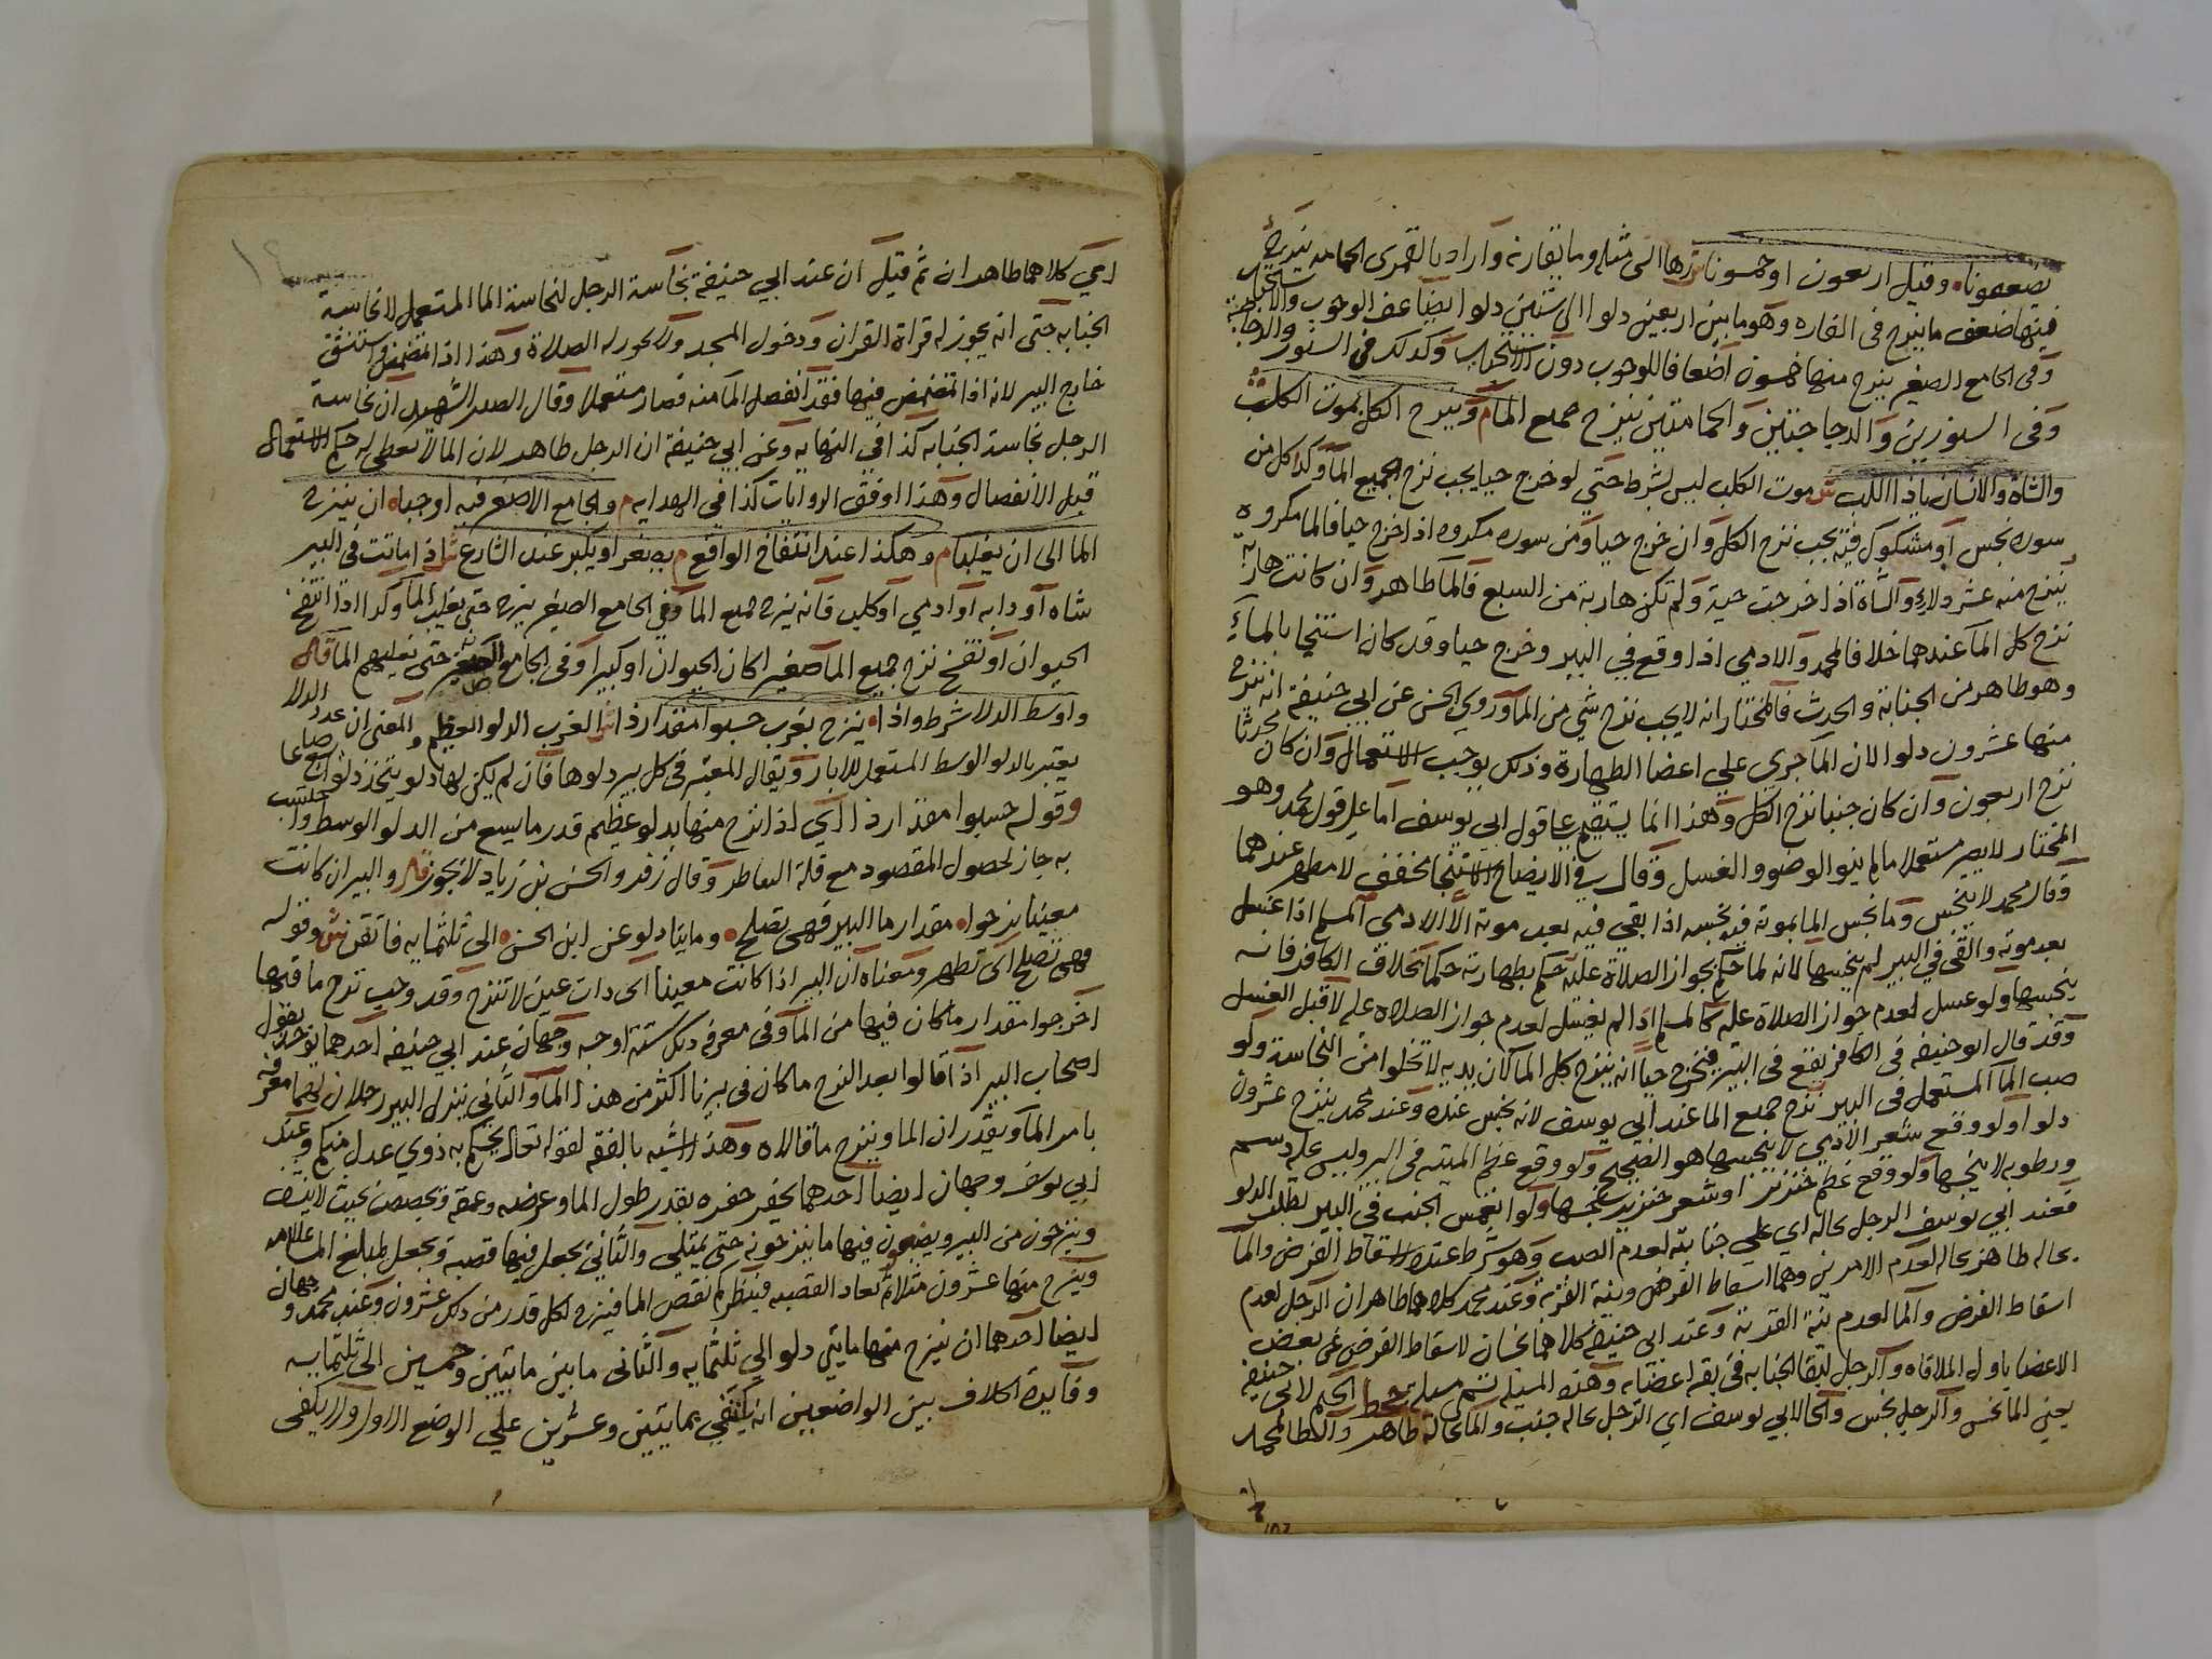 يضعفونا وقيل اربعون او خمسونا ش زها الى مثله وما يقاربه واراد بالقمرى الحمامه ينزح
فيها ضعف ما ينزح فى الفاره وهو ما بين اربعين دلوا الى ستين دلوا ايضا عفا الوجوب والاستحباب
وفى الجامع الصغير ينزح منها خمسون اضعافا للوجوب دون الاستحباب وكذلك فى السنور والدجاجة
وفى السنورين والدجاجتين والحمامتين ينزح جميع الما م وينزح الكل بموت الكلب
والشاة والانسان ياذا اللب ش موت الكلب ليس بشرط حتي لو خرج حيا يجب نزح جميع الما وكذا كل من
سوره نجس او مشكوك فيه يجب نزح الكل وان خرج حيا ومن سوره مكروه اذا خرج حيا فالما مكروه
ينزح منه عشر دلاء والشاة اذا خرجت حية ولم تكن هاربة من السبع فالما طاهر وان كانت هاربة
نزح كل الما عندهما خلافا لمحمد والادمي اذا وقع في البير وخرج حيا وقد كان استنجا بالماء
وهو طاهر من الجنابة والحدث فالمختار انه لا يجب نزح شي من الما وروي الحسن عن ابي حنيفة انه ينزح
منها عشرون دلوا لان الما جري علي اعضا الطهارة وذلك يوجب الاستعمال وان كان محدثا
نزح اربعون وان كان جنبا نزح الكل وهذا انما يستقيم علي قول ابي يوسف اما علي قول محمد وهو
المختار لا يصير مستعملا ما لم ينو الوضو والغسل وقال في الايضاح الاستنجا مخفف لا مطهر عندهما
وقال محمد لا ينجس وما نجس الما بموته فيه نجسه اذا بقي فيه بعد موته الا الادمي المسلم اذا غسل
بعد موته والقي في البير لم ينجسها لانه لما حكم بجواز الصلاة عليه حكم بطهارته حكما بخلاف الكافر فانه
ينجسها ولو غسل لعدم جواز الصلاة عليه كالمسلم اذا لم يغسل لعدم جواز الصلاه عليه قبل الغسل
وقد قال ابو حنيفه فى الكافر يقع فى البير فيخرج حيا انه ينزح كل الما لان بدنه لا تخلوا من النجاسة ولو
صب الما المستعمل فى البير نزح جميع الما عند ابي يوسف لانه نجس عنده وعند محمد ينزح عشرون
دلوا ولو وقع شعر الادمي لا ينجسها هو الصحيح ولو وقع عظم الميته فى البير وليس عليه دسم
ورطوبه لا ينجسها ولو وقع عظم خنزير او شعر خنزير ينجسها ولو انغمس الجنب في البير لطلب الدلو
فعند ابي يوسف الرجل بحاله اي علي جنابته لعدم الصب وهو شرط عنده لاسقاط الفرض والما
بحاله طاهر بحاله لعدم الامرين وهما اسقاط الفرض ونية القربة وعند محمد كلاهما طاهران الرجل لعدم
اسقاط الفرض والما لعدم نية القربة وعند ابي حنيفة كلاهما نجسان لاسقاط الفرض عن بعض
الاعضا باول الملاقاه والرجل لبقا الجنابه فى بقية اعضايه وهذه المسيله تسمي مسيلة جحط الجيم لابى حنيفه
يعني الما نجس والرجل نجس والحا لابي يوسف اي الرجل بحاله جنب والما بحاله طاهر والطا لمحمد
اي كلاهما طاهران ثم قيل ان عند ابي حنيفة نجاسة الرجل لنجاسة الما المستعمل لا نجاسة
الجنابه حتى انه يجوز له قراة القران ودخول المسجد ولا يجوز له الصلاة وهذا اذا تمضمض واستنشق
خارج البير لانه اذا تمضمض فيها فقد انفصل الما منه فصار مستعملا وقال الصدر الشهيد ان نجاسة
الرجل نجاسة الجنابه كذا في النهايه وعن ابي حنيفة ان الرجل طاهر لان الما لا يعطي له حكم الاستعمال
قبل الانفصال وهذا اوفق الروايات كذا في الهدايه م والجامع الاصغر فيه اوجباه ان ينزح
الما الى ان يغلبا م وهكذا عند انتفاخ الواقع م به يغر او يكبر عند الشارع ش اذا ماتت في البير
شاه او دابه او ادمي او كلب فانه ينزح جميع الما وفي الجامع الصغير ينزح حتى يغلب الما وكذا اذا انتفخ
الحيوان او تفسخ نزح جميع الما صغيرا كان الحيوان او كبيرا وفى الجامع الصغير حتى يغلبهم الما قال
واوسط الدلا شرط واذا ينزح بغرب حسبوا مقدار ذا ش الغرب الدلو العظيم والمعني ان عدد الدلا
يعتبر بالدلو الوسط المستعمل للابار ويقال المعتبر فى كل بير دلوها فان لم يكن لها دلو يتخذ دلو يسع صاعا
وقوله حسبوا مقدار ذا اي اذا نزح منها بدلو عظيم قدر ما يسع من الدلو الوسط واحتسب
به جاز لحصول المقصود مع قلة التقاطر وقال زفر والحسن بن زياد لا يجوز قال والبير ان كانت
معينا ينزحوا مقدار ما البير فهى تصلح وما يتا دلو عن ابن الحسن الى ثلثمايه فاتقن ش وقوله
فهي تصلح اي تطهر ومعناه ان البير اذا كانت معينا اى ذات عين لا تنزح وقد وجب نزح ما فيها
اخرجوا مقدار ما كان فيها من الما وفى معرفه ذلك ستة اوجه وجهان عند ابي حنيفه احدهما يوخذ بقول
اصحاب البير اذا قالوا بعد النزح ما كان فى بيرنا اكثر من هذا الما والثاني ينزل البير رجلان لهما معرفه
بامر الما ويقدران الما وينزح ما قالاه وهذا اشبه بالفقه لقوله تعالى يحكم به ذوي عدل منكم وعند
ابي يوسف وجهان ايضا احدهما يحفر حفره بقدر طول الما وعرضه وعمقه وتجصص بحيث لا ينشف
وينزحون من البير ويصبون فيها ما ينزحونه حتى يمتلي والثاني يجعل فيها قصبة ويجعل لمبلغ الما علامه
وينزح منها عشرون مثلا ثم تعاد القصبه فينظر كم نقص الما فينزح لكل قدر من ذلك عشرون وعند محمد وجهان
ايضا احدهما ان ينزح منها مايتي دلو الي ثلثمايه والثانى ما بين مايتين وخمسين الى ثلثمايه
وفايدة الخلاف بين الواضعين انه يكتفي بمايتين وعشرين علي الوضع الاول ولا يكفى